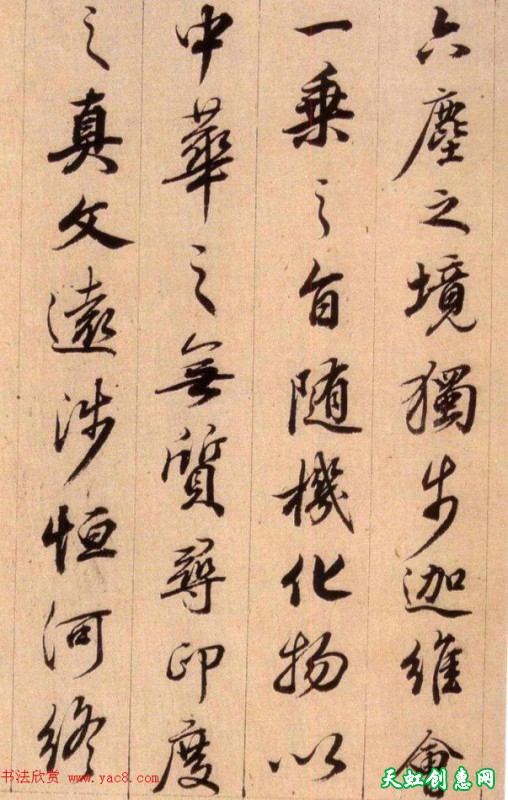 六塵之境獨步迦維會
一乗之旨随機化物以
中華之無質尋印度
之真文遠涉恒河終
书法欣赏 www.yac8.com
天虹创惠网